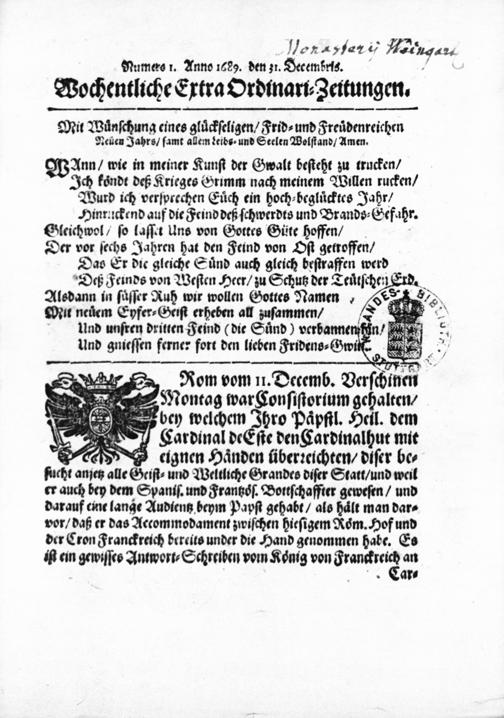 Monasterij Weingart
Numero 1. Anno 1689. den 31. Decembris.
Wochentliche Extra Ordinari-Zeitungen.
Mit Wünschung eines glückseligen/ Frid- und Freüdenreichen
Neüen Jahrs/ samt allem Leibs- und Seelen Wolstand/ Amen.
WAnn/ wie in meiner Kunst der Gwalt besteht zu trucken/
Ich köndt deß Krieges Grimm nach meinem Willen rucken/
Wurd ich versprechen Eüch ein hoch-beglücktes Jahr/
Hinruckend auf die Feind deß schwerdts und Brands-Gefahr.
Gleichwol/ so lasset Uns von Gottes Güte hoffen/
Der vor sechs Jahren hat den Feind von Ost getroffen/
Das Er die gleiche Sünd auch gleich bestraffen werd
Deß Feinds von Westen Heer/ zu Schutz der Teütschen Erd.
Alsdann in süsser Ruh wir wollen Gottes Namen
Mit neüem Eyfer-Geist erheben all zusammen/
Und unsren dritten Feind (die Sünd) verbannen
Und gniessen ferner fort den lieben Fridens-Gwin
LANDES-BIBLIOTH
STUTTGART
Rom vom 11. Decemb. Verschinen
Montag war Consistorium gehalten/
bey welchem Ihro Päpstl. Heil. dem
Cardinal de Este den Cardinalhut mit
eignen Händen überreichten/ diser be-
sucht anjetz alle Geist- und Weltliche Grandes diser Statt/ und weil
er auch bey dem Spanis. und Frantzös. Bottschaffter gewesen/ und
darauf eine lange Audientz beym Papst gehabt/ als hält man dar-
vor/ daß er das Accommodament zwischen hiesigem Röm. Hof und
der Cron Franckreich bereits under die Hand genommen habe. Es
ist ein gewisses Antwort-Schreiben vom König von Franckreich an
Car-